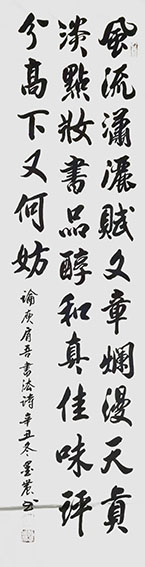 風流瀟灑賦文章爛漫天真
淡點妝書品醇和真佳味評
分高下又何妨
論庾肩吾書法詩辛丑冬墨農書